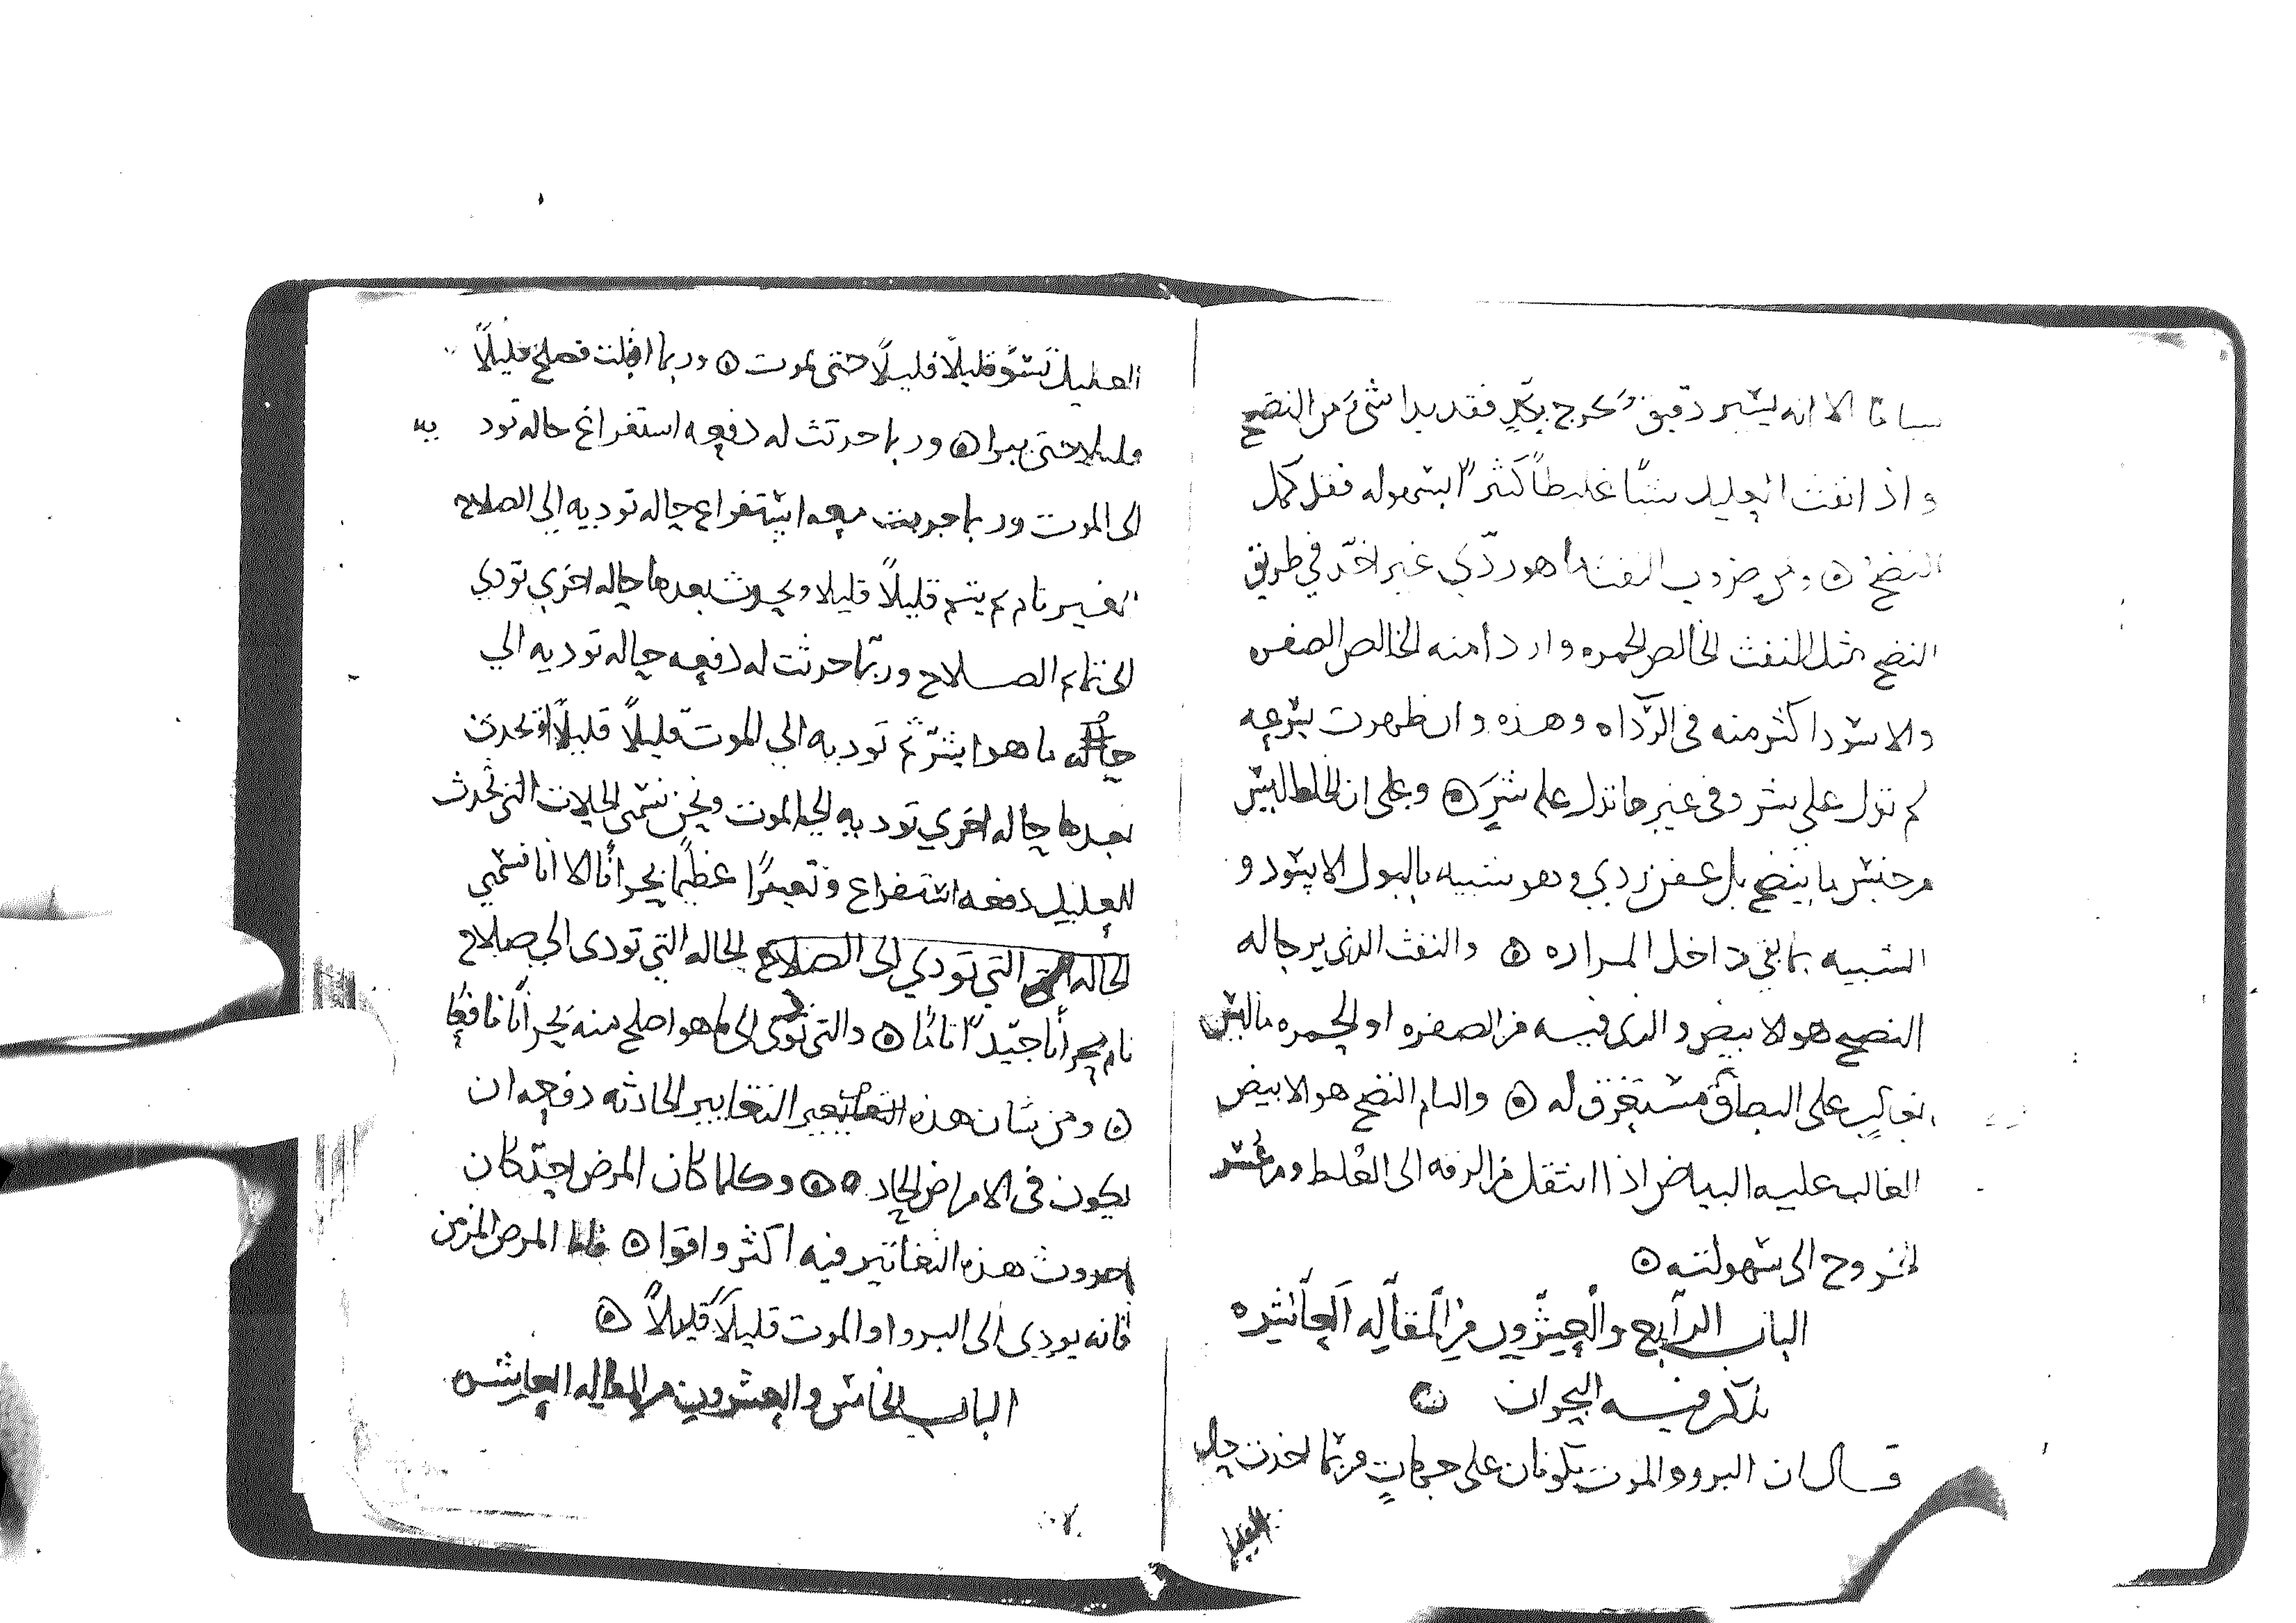 الا انه يسير دقيق وتخرج بكد فقد بدا شيء من النضج
واذا نفث العليل شيئًا غليظاً كثيرًا بسهوله فقد كمل
النضج ۞ ومن ضروب النفث ما هو ردّي غير اخذ في طريق
النضج مثل النفث الخالص الحمره واردا منه الخالص الصفره
والاسود اكثر منه في الرّداه وهذه وان ظهرت بسرعه
لم تدل على بشر وفي غير ما تدل على شرٍ ۞ وعلى ان الخلط ليس
من جنس ما ينضج بل عفن ردي وهو شبيه بالبول الاسود و
الشبيه بما بقي داخل المراره ۞ والنفث الذي يرجا له
النضج هو الابيض والذي فيه من الصفره او الحمره ما ليس
بغالبٍ على البصاق مستغرق له ۞ والتام النضج هو الابيض
الغالب عليه البياض اذا انتقل من الرقه الى الغلط ومن عسر
الخروج الى سهولته ۞
الباب الرابع والعشرون من المقاله العاشره
نذكر فيه البحران ۞
قال ان البرو والموت يكونان على جهاتٍ فربما اخذت حال
العليل
العليل تسوّ قليلًا قليلًا حتى يموت ۞ وربما اقبلت فصلح قليلًا
قليلا حتى يبرا ۞ وربما حدثت له دفعه استفراغ حاله تود به
الى الموت وربما حدثت معه استفراغ حاله توديه الى الصلاح
الغير تام ثم يتم قليلًا قليلا ويحدث بعدها حاله اخري تودي
الى تمام الصلاح وربّما حدثت له دفعه حاله توديه الي
حاله ما هو اشرّ ثم توديه الي الموت قليلًا قليلًا او تحدث
بعدها حاله اخري توديه الى الموت ونحن نسمي الحالات التي تحدث
للعليل دفعه استفراغ وتغييرًا عظيمًا بحرانًا الا انا نسمي
الحاله التي تودي الى الصلاح الحاله التي تودى الى صلاح
تام بحرانًا جيّدًا تامًا ۞ والتي تودي الى ما هو اصلح منه بحرانًا ناقصًا
۞ ومن شان هذه التغايير الحادثه دفعه ان
يكون في الامراض الحاد ۞ ۞ وكلما كان المرض احدّ كان
حدوث هذه التغايير فيه اكثر واقوا ۞ فاما المرض المزمن
فانه يودي الى البرو او الموت قليلًا قليلاً ۞
الباب الخامس والعشرون من المقاله العاشره